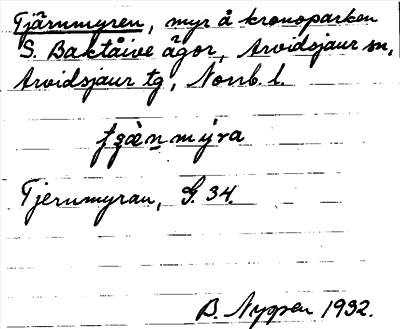 Tjärnmyren, myr å kronoparken
S. Baktåive ägor, Arvidsjaur sn,
Arvidsjaur tg, Norrb. l.
Tjernmyran, G. 34.
B. Nygren 1932.